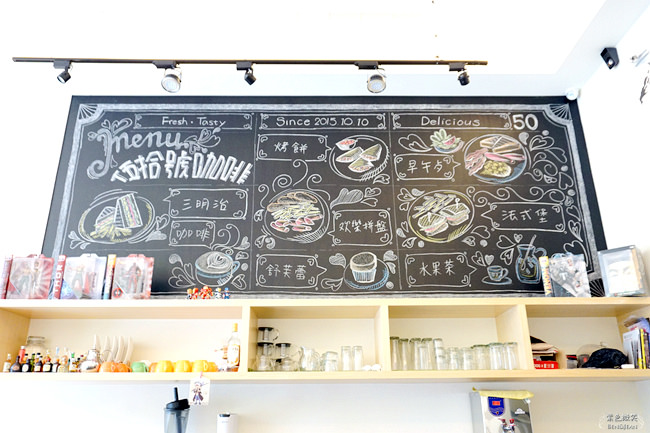 Fresh · Tasty
menu
伍拾號咖啡
三明治
咖啡
Since 2015 10 10
烤餅
歡樂拼盤
舒芙蕾
Delicious
50
早午夕
法式堡
水果茶
紫色微笑